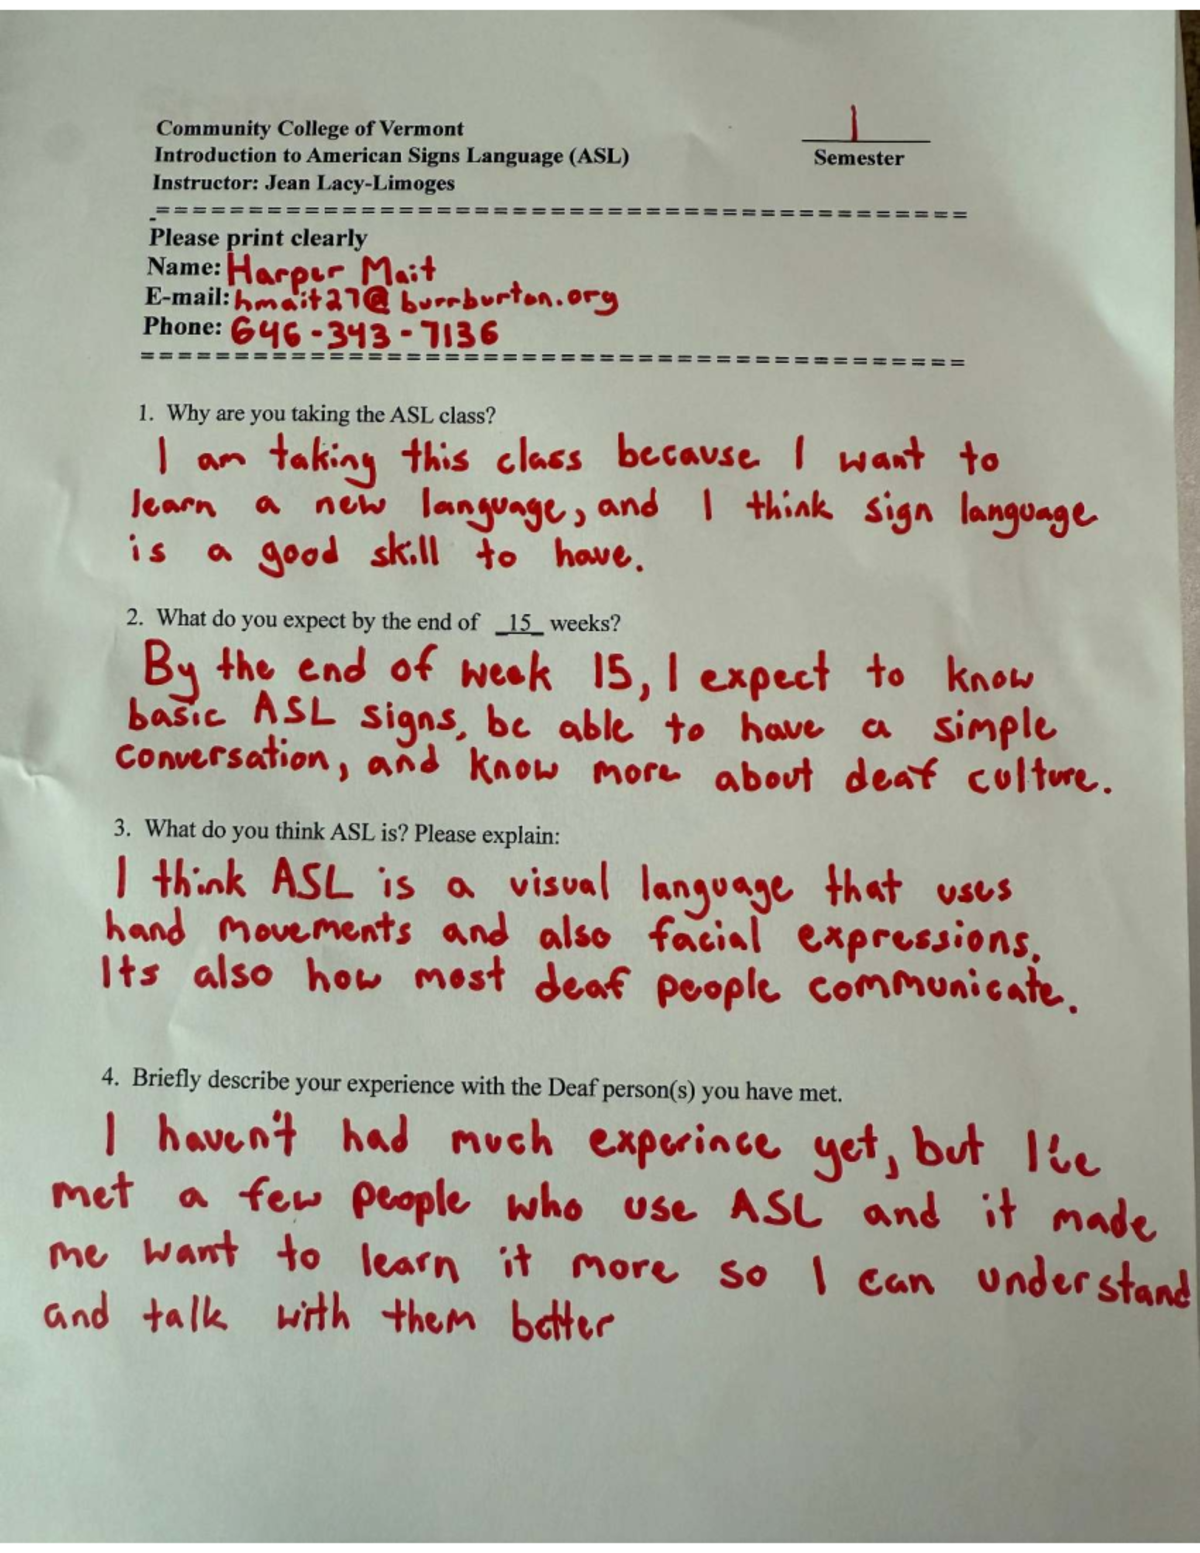 Community College of Vermont
Introduction to American Signs Language (ASL)
Instructor: Jean Lacy-Limoges
1
Semester
============================================
Please print clearly
Name: Harper Mait
E-mail: hmait27@burrburton.org
Phone: 646-343-7136
============================================
1. Why are you taking the ASL class?
I am taking this class because I want to
learn a new language, and I think sign language
is a good skill to have.
2. What do you expect by the end of _15_ weeks?
By the end of week 15, I expect to know
basic ASL signs, be able to have a simple
conversation, and know more about deaf culture.
3. What do you think ASL is? Please explain:
I think ASL is a visual language that uses
hand movements and also facial expressions.
Its also how most deaf people communicate.
4. Briefly describe your experience with the Deaf person(s) you have met.
I haven't had much experince yet, but I've
met a few people who use ASL and it made
me want to learn it more so I can understand
and talk with them better